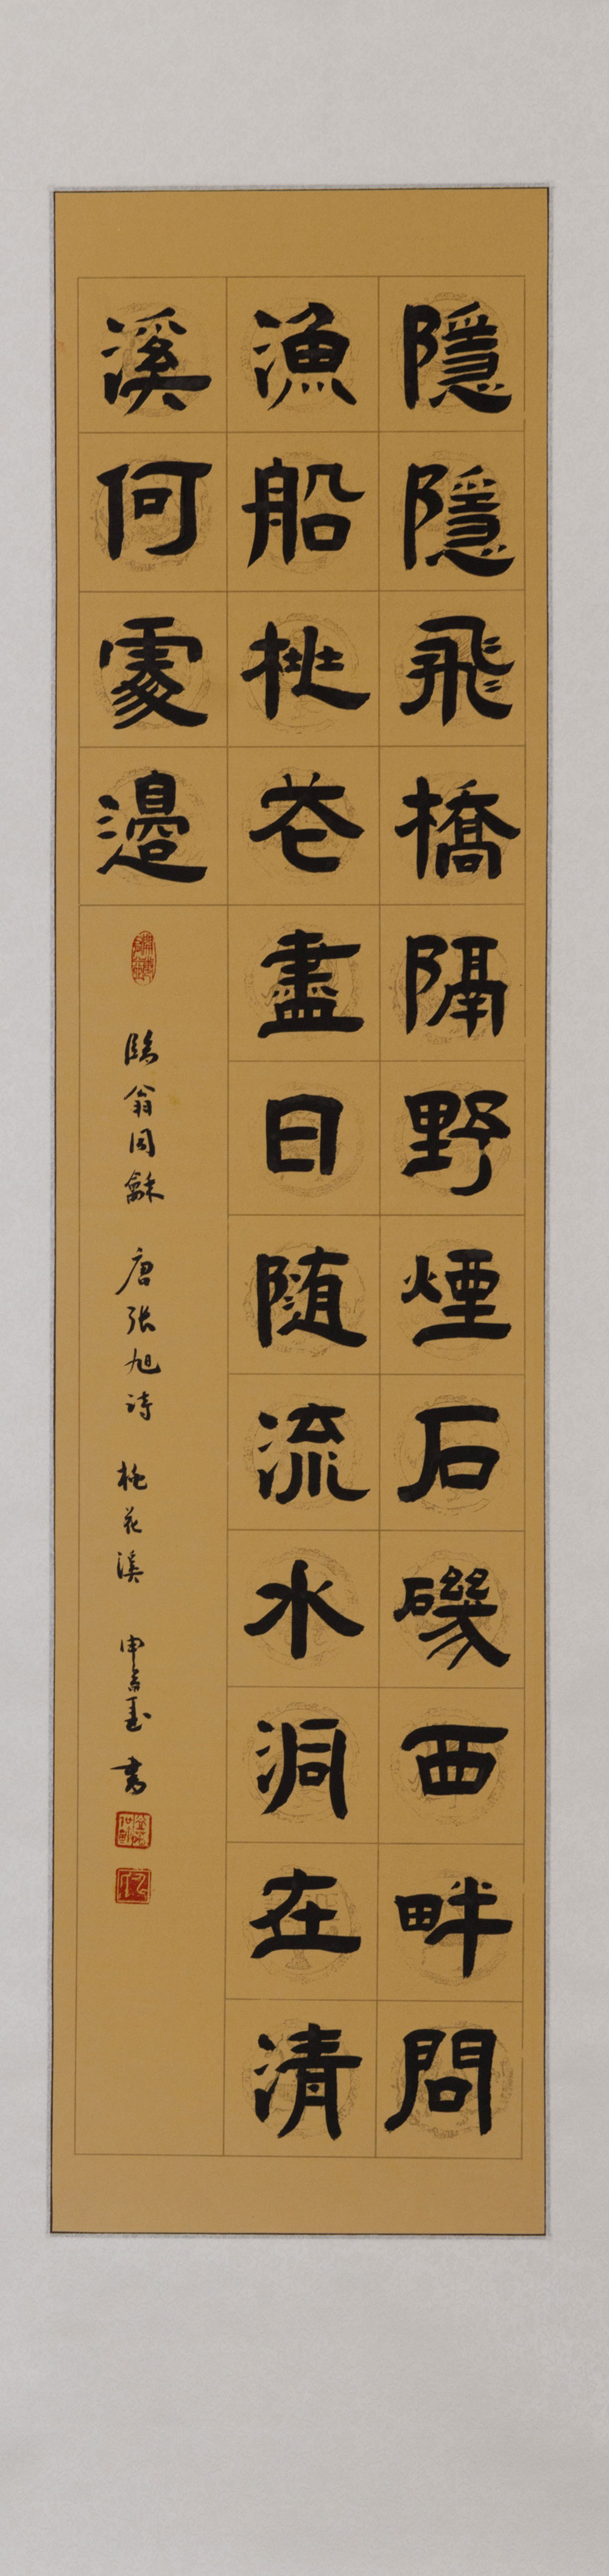 隱隱飛橋隔野煙石磯西畔問
漁船桃花盡日随流水洞在清
溪何處邊
臨翁同龢 唐張旭詩 桃花溪 書